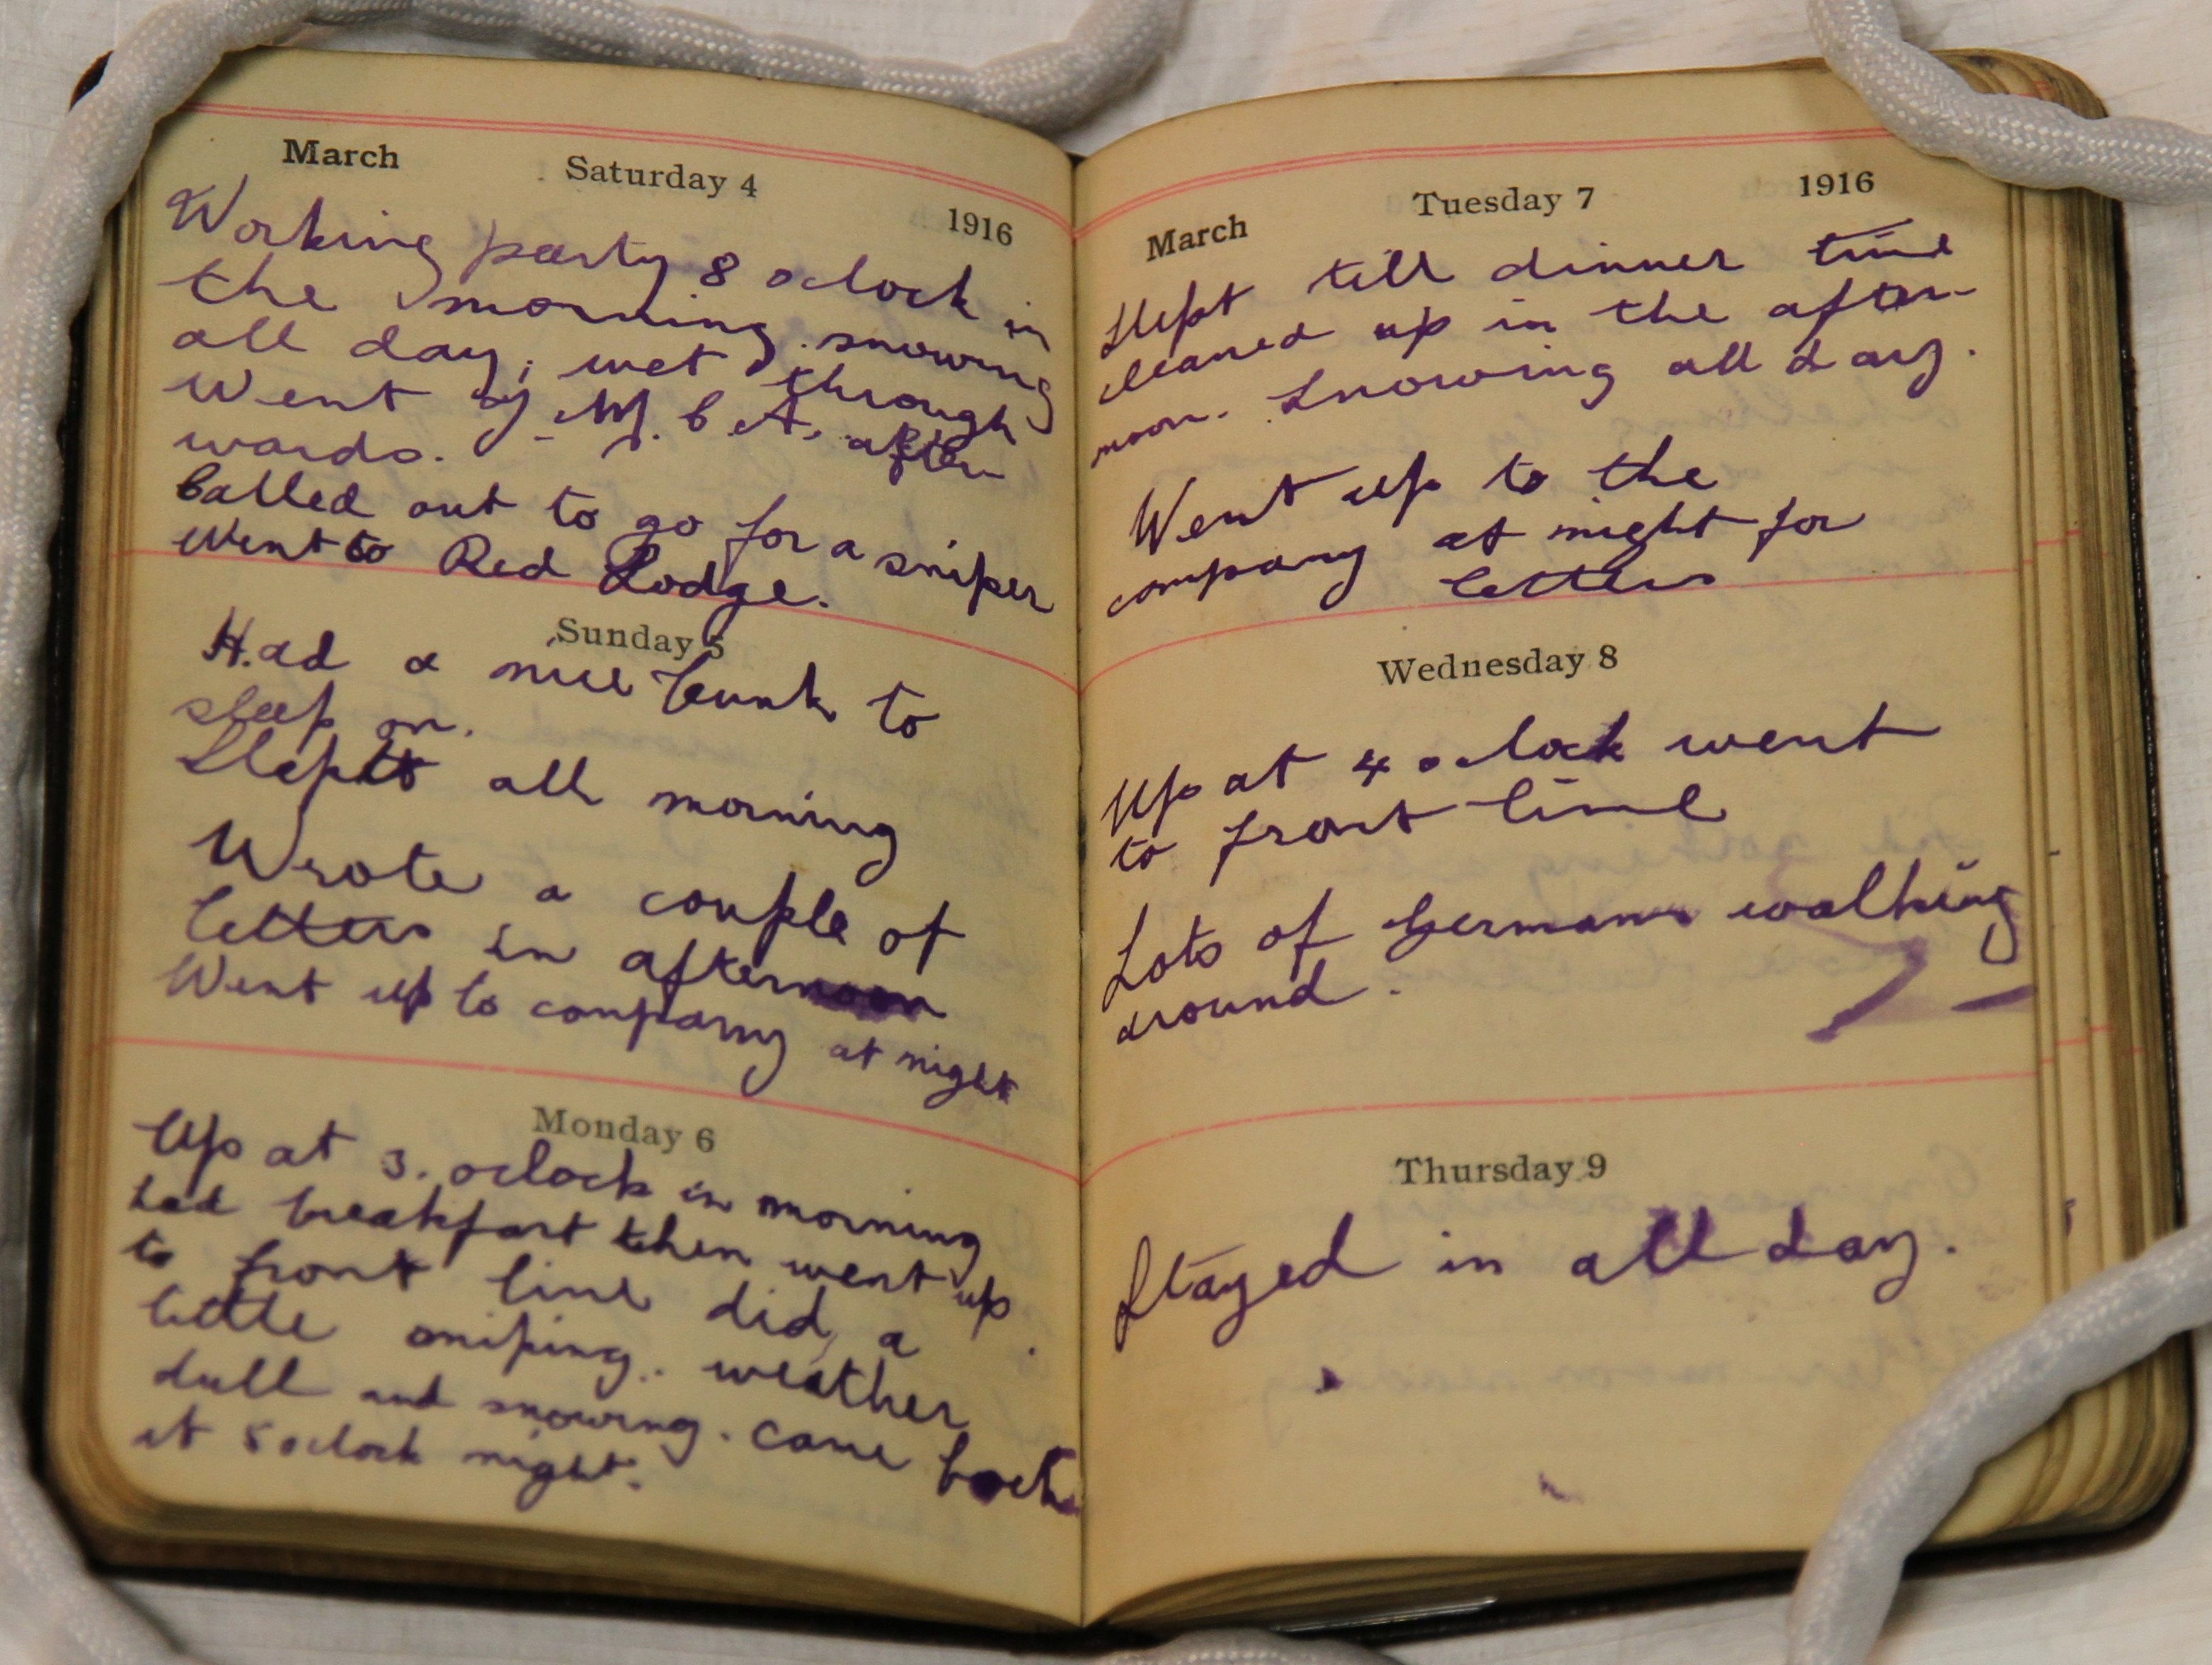 March Saturday 4 1916
Working party 8 oclock in
the morning. snowing
all day, wet through
Went Y. M. C. A. after-
wards.
Called out to go for a sniper
Went to Red Lodge.
Sunday 5
Had a nice bunk to
sleep on.
Slept all morning
Wrote a couple of
letters in afternoon
Went up to company at night
Monday 6
Up at 3. oclock in morning
had breakfast then went up
to front line did a
little sniping. weather
dull and snowing. came back
at 8 oclock night.
March Tuesday 7 1916
Slept till dinner time
cleaned up in the after-
noon. Snowing all day.
Went up to the
company at night for
letters
Wednesday 8
Up at 4 oclock went
to front line
Lots of Germans walking
around.
Thursday 9
Stayed in all day.